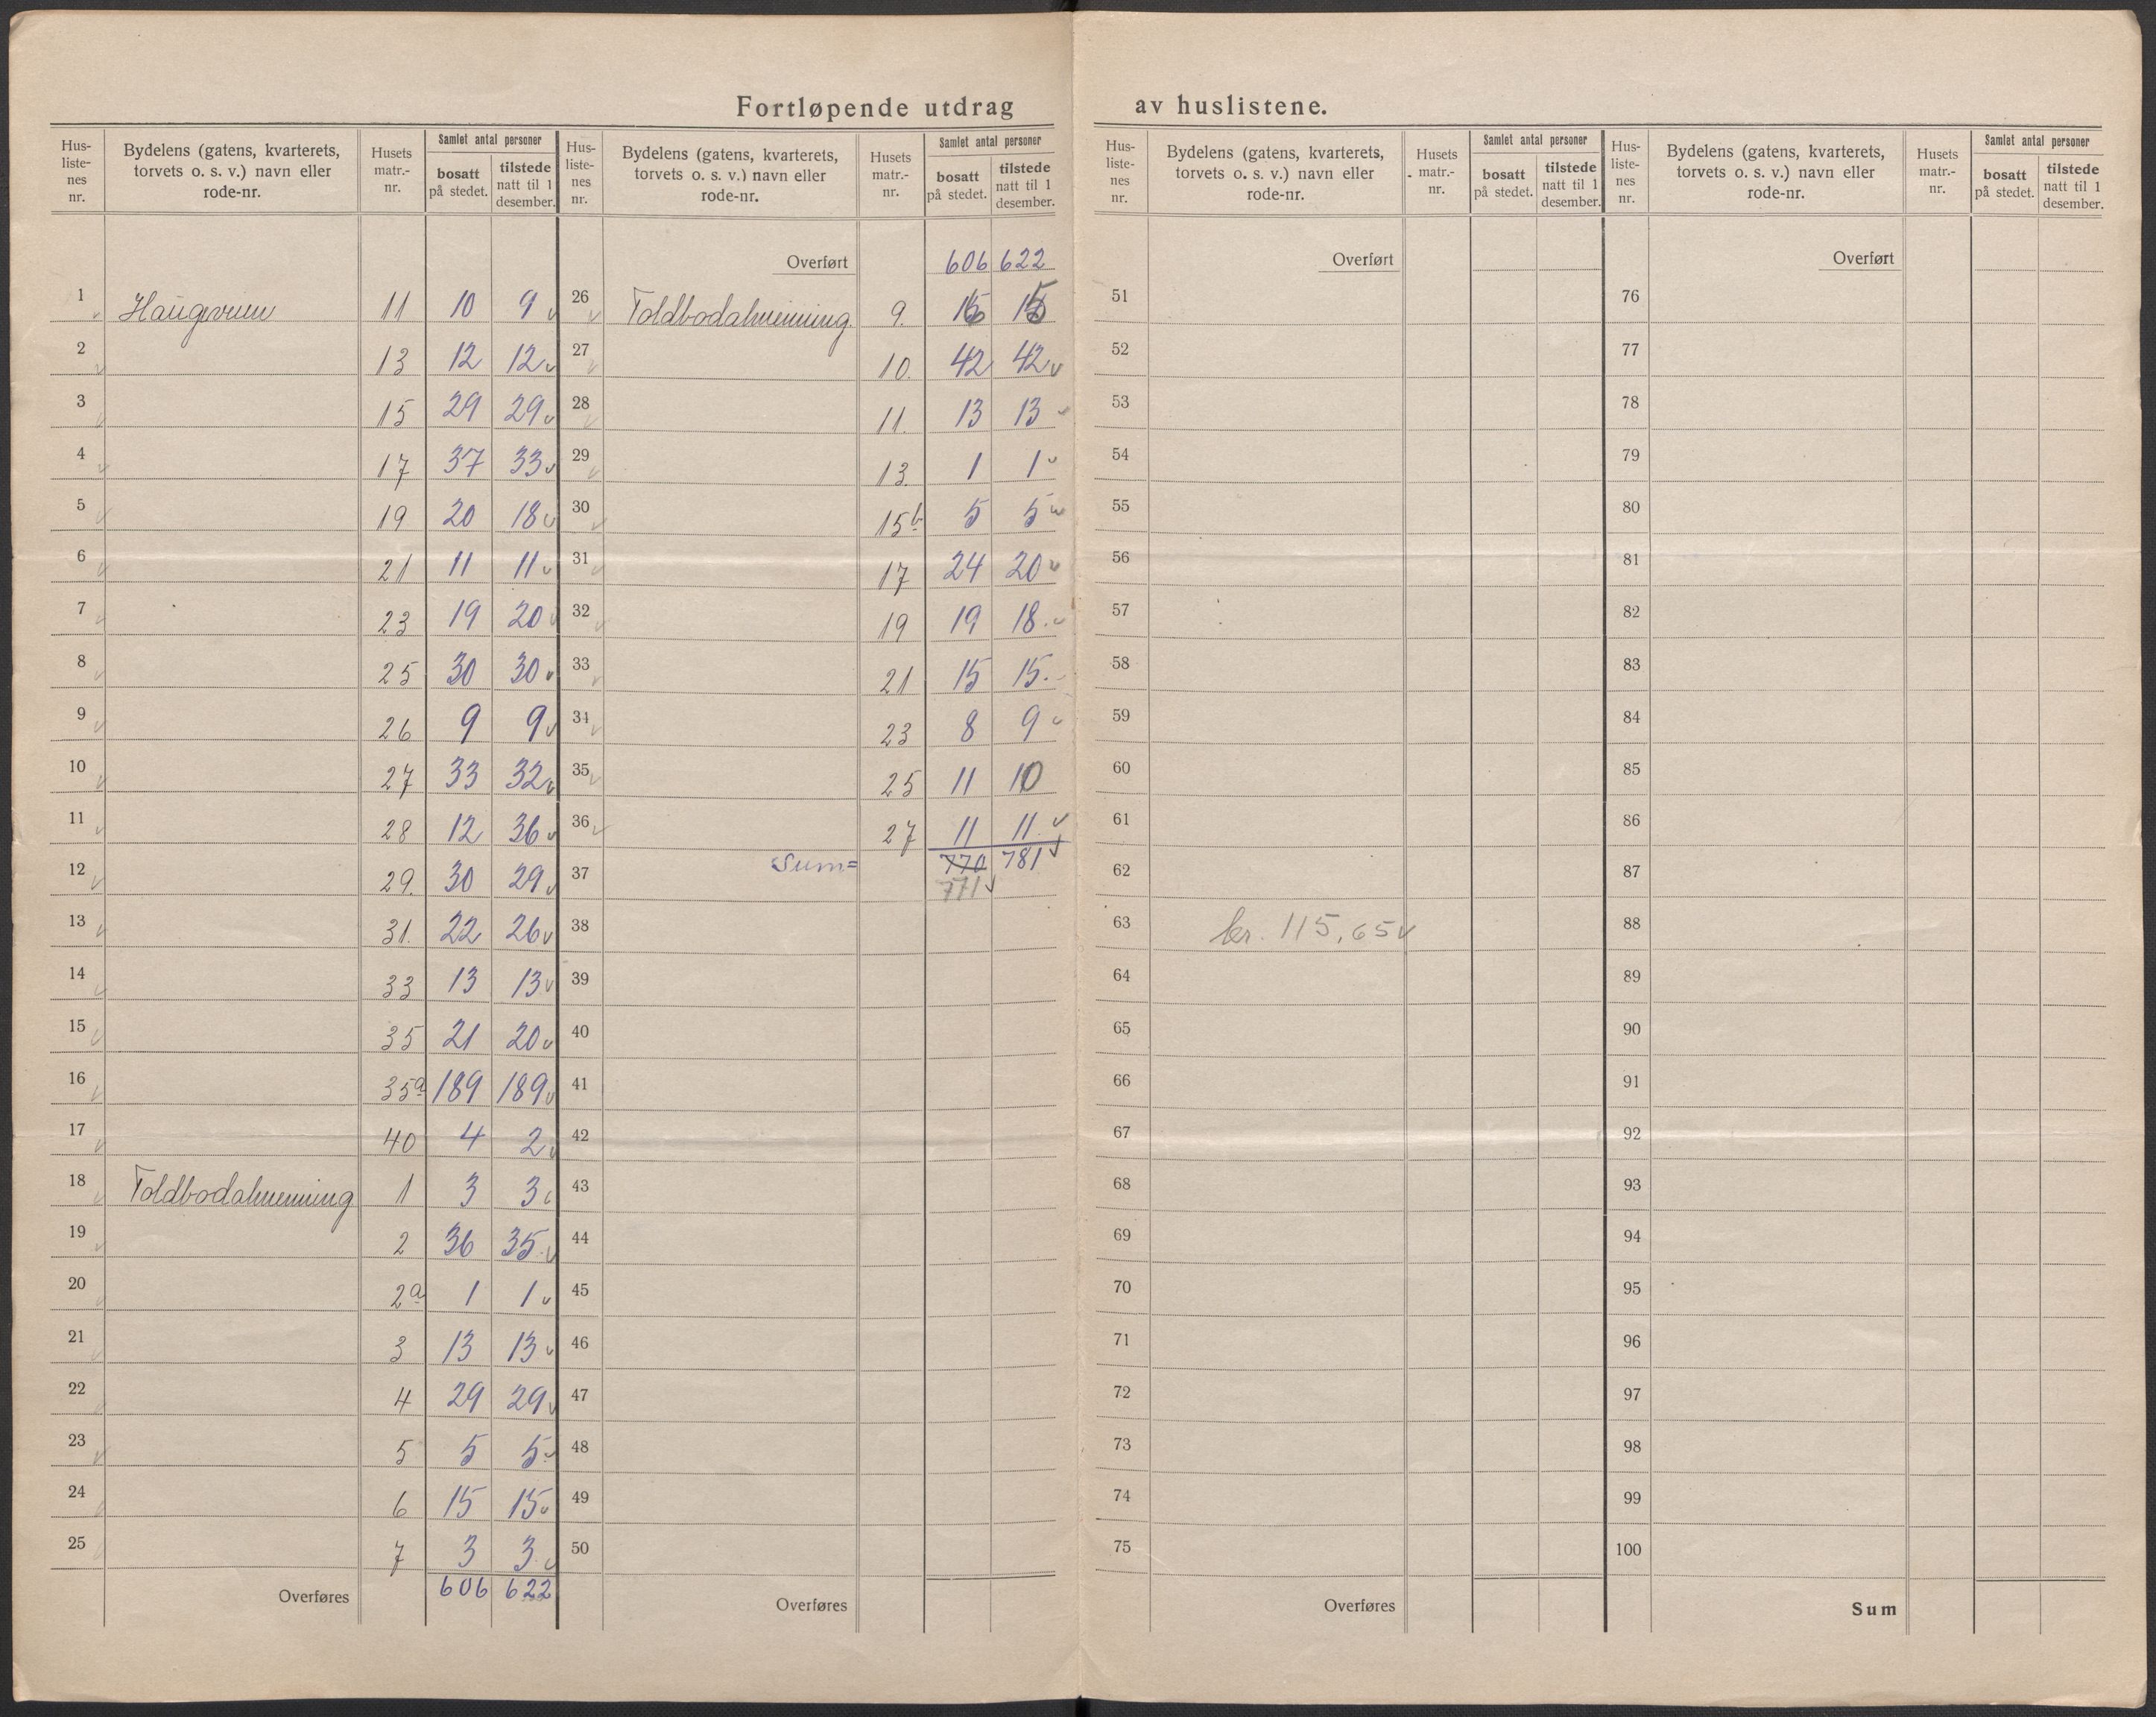 Fortløpende utdrag av huslistene.
Hus-listenes nr. | Bydelens (gatens, kvarterets, torvets o. s. v.) navn eller rode-nr. | Husets matr.-nr. | Samlet antal personer: bosatt på stedet. | tilstede natt til 1 desember.
1 Haugeveien 11 10 9 v
2 13 12 12 v
3 15 29 29 v
4 17 37 33 v
5 19 20 18 v
6 21 11 11 v
7 23 19 20 v
8 25 30 30 v
9 26 9 9 v
10 27 33 32 v
11 28 12 36 v
12 29. 30 29 v
13 31. 22 26 v
14 33 13 13 v
15 35 21 20 v
16 35a 189 189 v
17 40 4 2 v
18 Toldbodalmenning 1 3 3 v
19 2 36 35 v
20 2a 1 1 v
21 3 13 13 v
22 4 29 29 v
23 5 5 5 v
24 6 15 15 v
25 7 3 3 v
Overføres 606 622
Hus-listenes nr. | Bydelens (gatens, kvarterets, torvets o. s. v.) navn eller rode-nr. | Husets matr.-nr. | Samlet antal personer: bosatt på stedet. | tilstede natt til 1 desember.
Overført 606 622
26 Toldbodalmenning 9. 15
27 10. 42 42 v
28 11. 13 13 v
29 13. 1 1 v
30 15b 5 5 v
31 17 24 20 v
32 19 19 18 v
33 21 15 15
34 23 8 9 v
35 25 11 10
36 27 11 11 v
37 Sum= 770 781 v
771 v
38
39
40
41
42
43
44
45
46
47
48
49
50
Overføres
Hus-listenes nr. | Bydelens (gatens, kvarterets, torvets o. s. v.) navn eller rode-nr. | Husets matr.-nr. | Samlet antal personer: bosatt på stedet. | tilstede natt til 1 desember.
Overført
51
52
53
54
55
56
57
58
59
60
61
62
63 kr. 115,65 v
64
65
66
67
68
69
70
71
72
73
74
75
Overføres
Hus-listenes nr. | Bydelens (gatens, kvarterets, torvets o. s. v.) navn eller rode-nr. | Husets matr.-nr. | Samlet antal personer: bosatt på stedet. | tilstede natt til 1 desember.
Overført
76
77
78
79
80
81
82
83
84
85
86
87
88
89
90
91
92
93
94
95
96
97
98
99
100
Sum